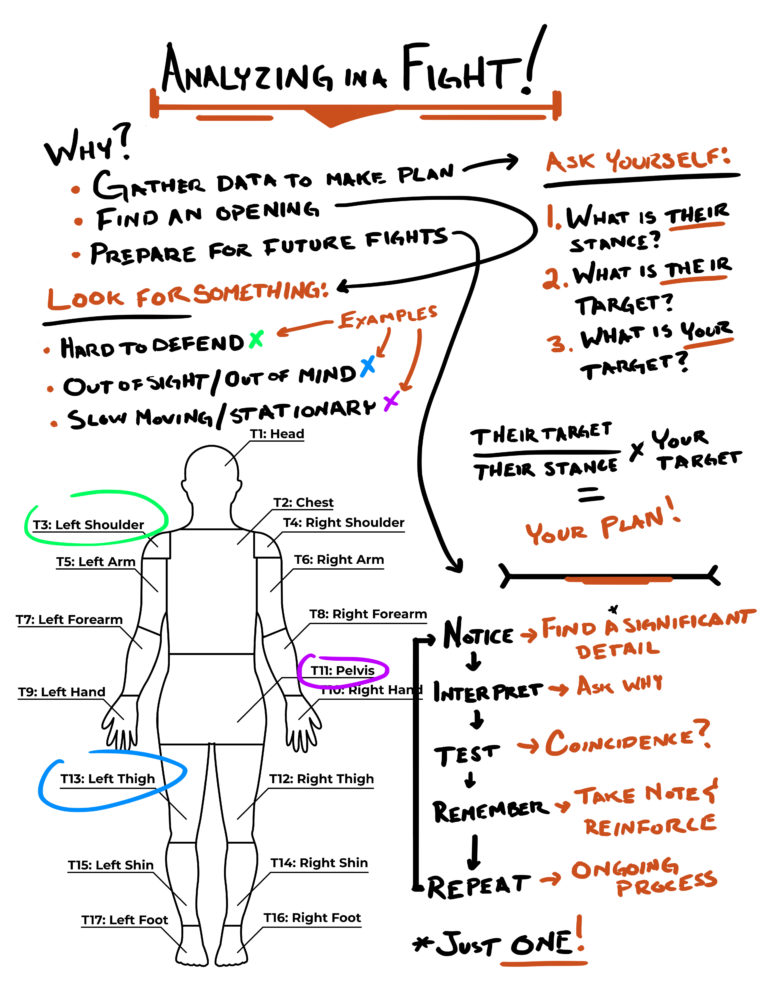 ANALYZING IN A FIGHT!
WHY?
• GATHER DATA TO MAKE PLAN
• FIND AN OPENING
• PREPARE FOR FUTURE FIGHTS
ASK YOURSELF:
1. WHAT IS THEIR
STANCE?
2. WHAT IS THEIR
TARGET?
3. WHAT IS YOUR
TARGET?
LOOK FOR SOMETHING:
EXAMPLES
• HARD TO DEFEND X
• OUT OF SIGHT/OUT OF MIND X
• SLOW MOVING/STATIONARY X
THEIR TARGET
THEIR STANCE
X YOUR
TARGET
=
YOUR PLAN!
T1: Head
T2: Chest
T3: Left Shoulder
T4: Right Shoulder
T5: Left Arm
T6: Right Arm
T7: Left Forearm
T8: Right Forearm
T11: Pelvis
T9: Left Hand
T10: Right Hand
T13: Left Thigh
T12: Right Thigh
T15: Left Shin
T14: Right Shin
T17: Left Foot
T16: Right Foot
NOTICE → FIND A* SIGNIFICANT
DETAIL
INTERPRET → ASK WHY
TEST → COINCIDENCE?
REMEMBER → TAKE NOTE &
REINFORCE
REPEAT → ONGOING
PROCESS
*JUST ONE!